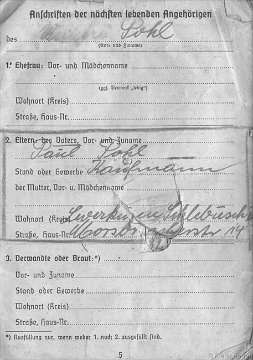 Anschriften der nächsten lebenden Angehörigen
des Sohl
(Vor- und Zuname)
1. Ehefrau: Vor- und Mädchenname
(ggf. Vermerk „ledig“)
Wohnort (Kreis)
Straße, Haus-Nr.
2. Eltern, des Vaters, Vor- und Zuname
Paul Sohl
Stand oder Gewerbe Kaufmann
der Mutter, Vor- u. Mädchenname
Wohnort (Kreis) Leverkusen Schlebusch
Straße, Haus-Nr. 14
3. Verwandte oder Braut:*)
Vor- und Zuname
Stand oder Gewerbe
Wohnort (Kreis)
Straße, Haus-Nr.
*) Ausfüllung nur, wenn weder 1. noch 2. ausgefüllt sind.
5